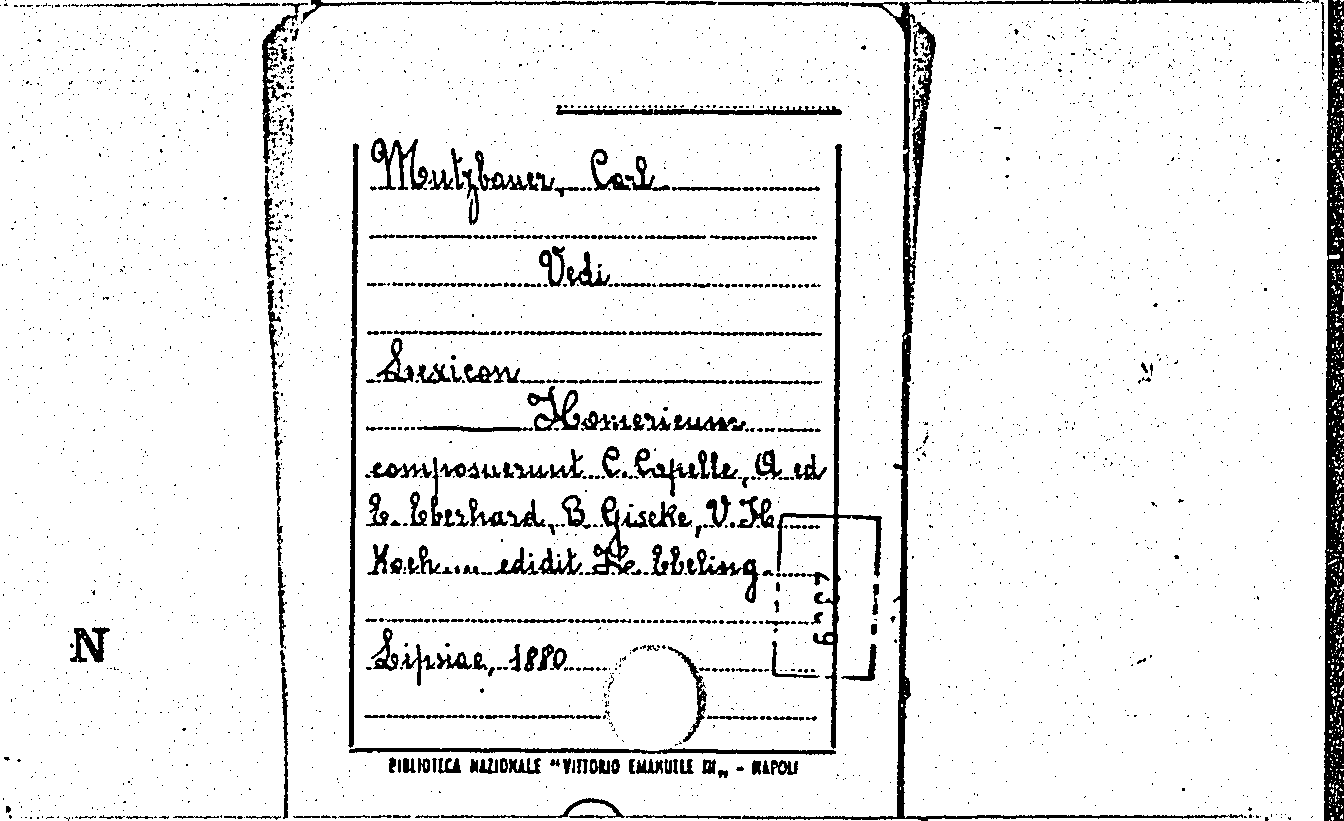 Mutzbauer, Carl.
Vedi
Lexicon
Homericum
composuerunt C. Capelle, A ed
E. Eberhard, B Giseke, V. H.
Koch.... edidit H. Ebeling.
Lipsiae, 1880
N
BIBLIOTECA NAZIONALE "VITTORIO EMANUELE III„ - NAPOLI